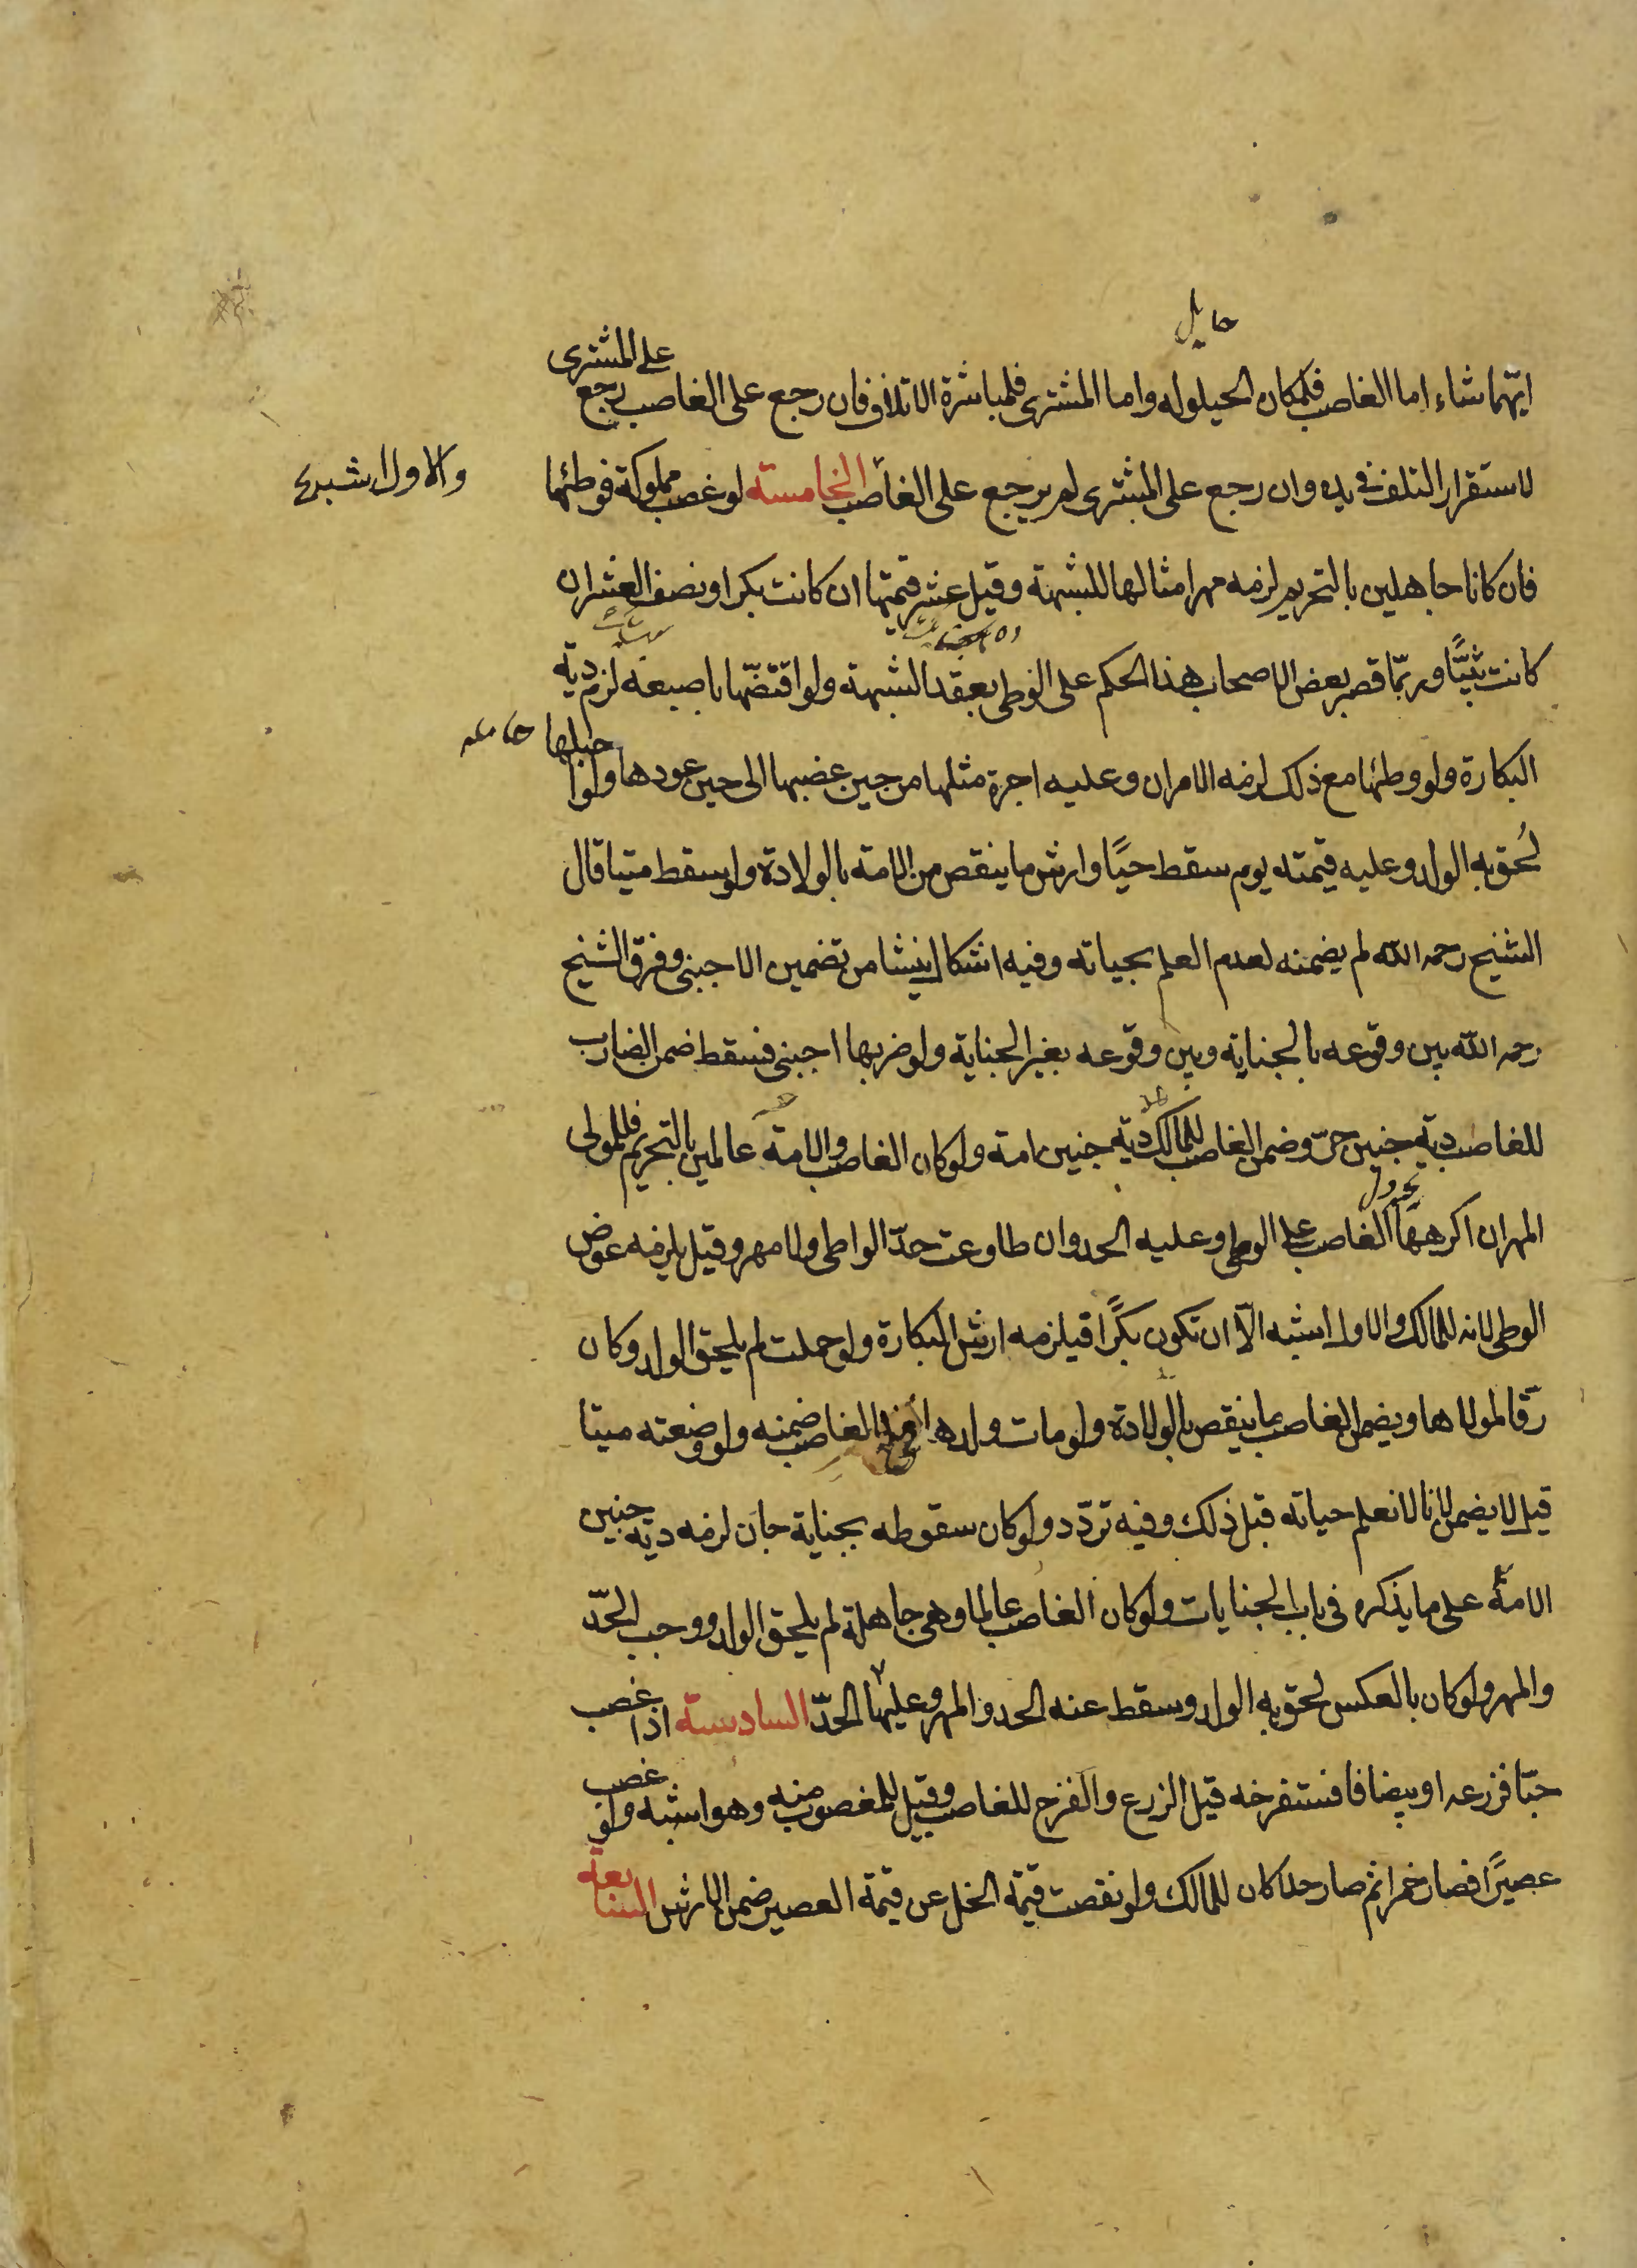 حايل
ايهما شاء اما الغاصب فلمكان الحيلوله واما المشتری فلمباشرة الاتلاف فان رجع علی الغاصب رجع علی المشتری
لاستقرار التلف فی يده وان رجع علی المشتری لم يرجع علی الغاصب الخامسة لو غصب مملوكة فوطئها
والاول اشبه
فان كانا جاهلين بالتحريم لزمه مهر امثالها للشبهة وقيل عشر قيمتها ان كانت بكرا او نصف العشر ان
كانت ثيبًا وربّما قصر بعض الاصحاب هذا الحكم علی الوطی بعقد الشبهة ولو اقتضّها باصبعه لزم دية
البكارة ولو وطئها مع ذلك لزمه الامران وعليه اجرة مثلها من حين غصبها الی حين عودها ولو احبلها
لُحق به الولد وعليه قيمته يوم سقط حيًا وارش ما ينقص من الامة بالولادة ولو سقط ميتا قال
الشيخ رحمه الله لم يضمنه لعدم العلم بحياته وفيه اشكال ينشا من تضمين الاجنبی وفرق الشيخ
رحمه الله بين وقوعه بالجناية وبين وقوعه بغير الجناية ولو ضربها اجنبی فسقط ضمن الضارب
للغاصب دية جنين حرّ وضمن الغاصب للمالك دية جنين امة ولو كان الغاصب والامة عالمين بالتحريم فللمولی
المهر ان اكرهها الغاصب علی الوطی وعليه الحد وان طاوعت حدّ الواطی ولا مهر وقيل يلزمه عوض
الوطی لانه للمالك والاول اشبه الّا ان تكون بكرًا فيلزمه ارش البكارة ولو حملت لم يلحق الولد وكان
رقّا لمولاها ويضمن الغاصب ما ينقص بالولادة ولو مات ولدها فی يد الغاصب ضمنه ولو وضعته ميتا
قيل لا يضمن لانا لا نعلم حياته قبل ذلك وفيه تردّد ولو كان سقوطه بجناية جان لزمه دية جنين
الامة علی ما يذكره فی باب الجنايات ولو كان الغاصب عالما وهی جاهلة لم يلحق الولد ووجب الحدّ
والمهر ولو كان بالعكس لحق به الولد وسقط عنه الحد والمهر وعليها الحدّ السادسة اذا غصب
حبّا فزرعه او بيضا فاستفرخه قيل الزرع والفرخ للغاصب وقيل للمغصوب منه وهو اشبه ولو غصب
عصيرًا فصار خمرا ثم صار خلا كان للمالك ولو نقصت قيمة الخل عن قيمة العصير ضمن الارش السابعة